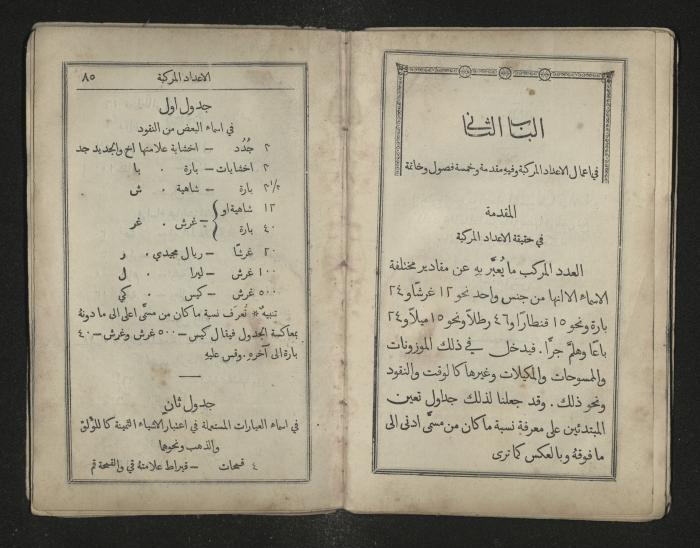 الباب الثاني
في اعمال الاعداد المركبة وفيه مقدمة وخمسة فصول وخاتمة
المقدمة
في حقيقة الاعداد المركبة
العدد المركب ما يُعبَّر به عن مقادير مختلفة
الاسماء الا انها من جنس واحد نحو ١٢ غرشًا و٢٤
بارة ونحو ١٥ قنطارًا و٤٦ رطلاً ونحو ١٥ ميلاً و٢٤
باعًا وهلمَّ جرًّا. فيدخل في ذلك الموزونات
والمسوحات والمكيلات وغيرها كالوقت والنقود
ونحو ذلك. وقد جعلنا لذلك جداول تعين
المبتدئين على معرفة نسبة ما كان من مسمًّى ادنى الى
ما فوقهُ وبالعكس كما ترى
الاعداد المركبة ٨٥
جدول اول
في اسماء البعض من النقود
٢ جُدُد = اخشاية علامتها اخ والجديد جد
٢ اخشايات = بارة . با
٢/١ ٢ بارة = شاهية . ش
١٢ شاهية او
٤٠ بارة } = غرش . غر
٢٠ غرشًا = ريال مجيدي . ر
١٠٠ غرش = ليرا . ل
٥٠٠ غرش = كيس . كي
تنبيه * تُعرَف نسبة ما كان من مسمًّى اعلى الى ما دونهُ
بمعاكسة الجدول فيقال كيس = ٥٠٠ غرش وغرش = ٤٠
بارة الى آخره. وقس عليهِ
جدول ثانٍ
في اسماء العبارات المستعملة في اعتبار الاشياء الثمينة كاللؤلؤ
والذهب ونحوها
٤ قمحات = قيراط علامتهُ قي والقمحة قم